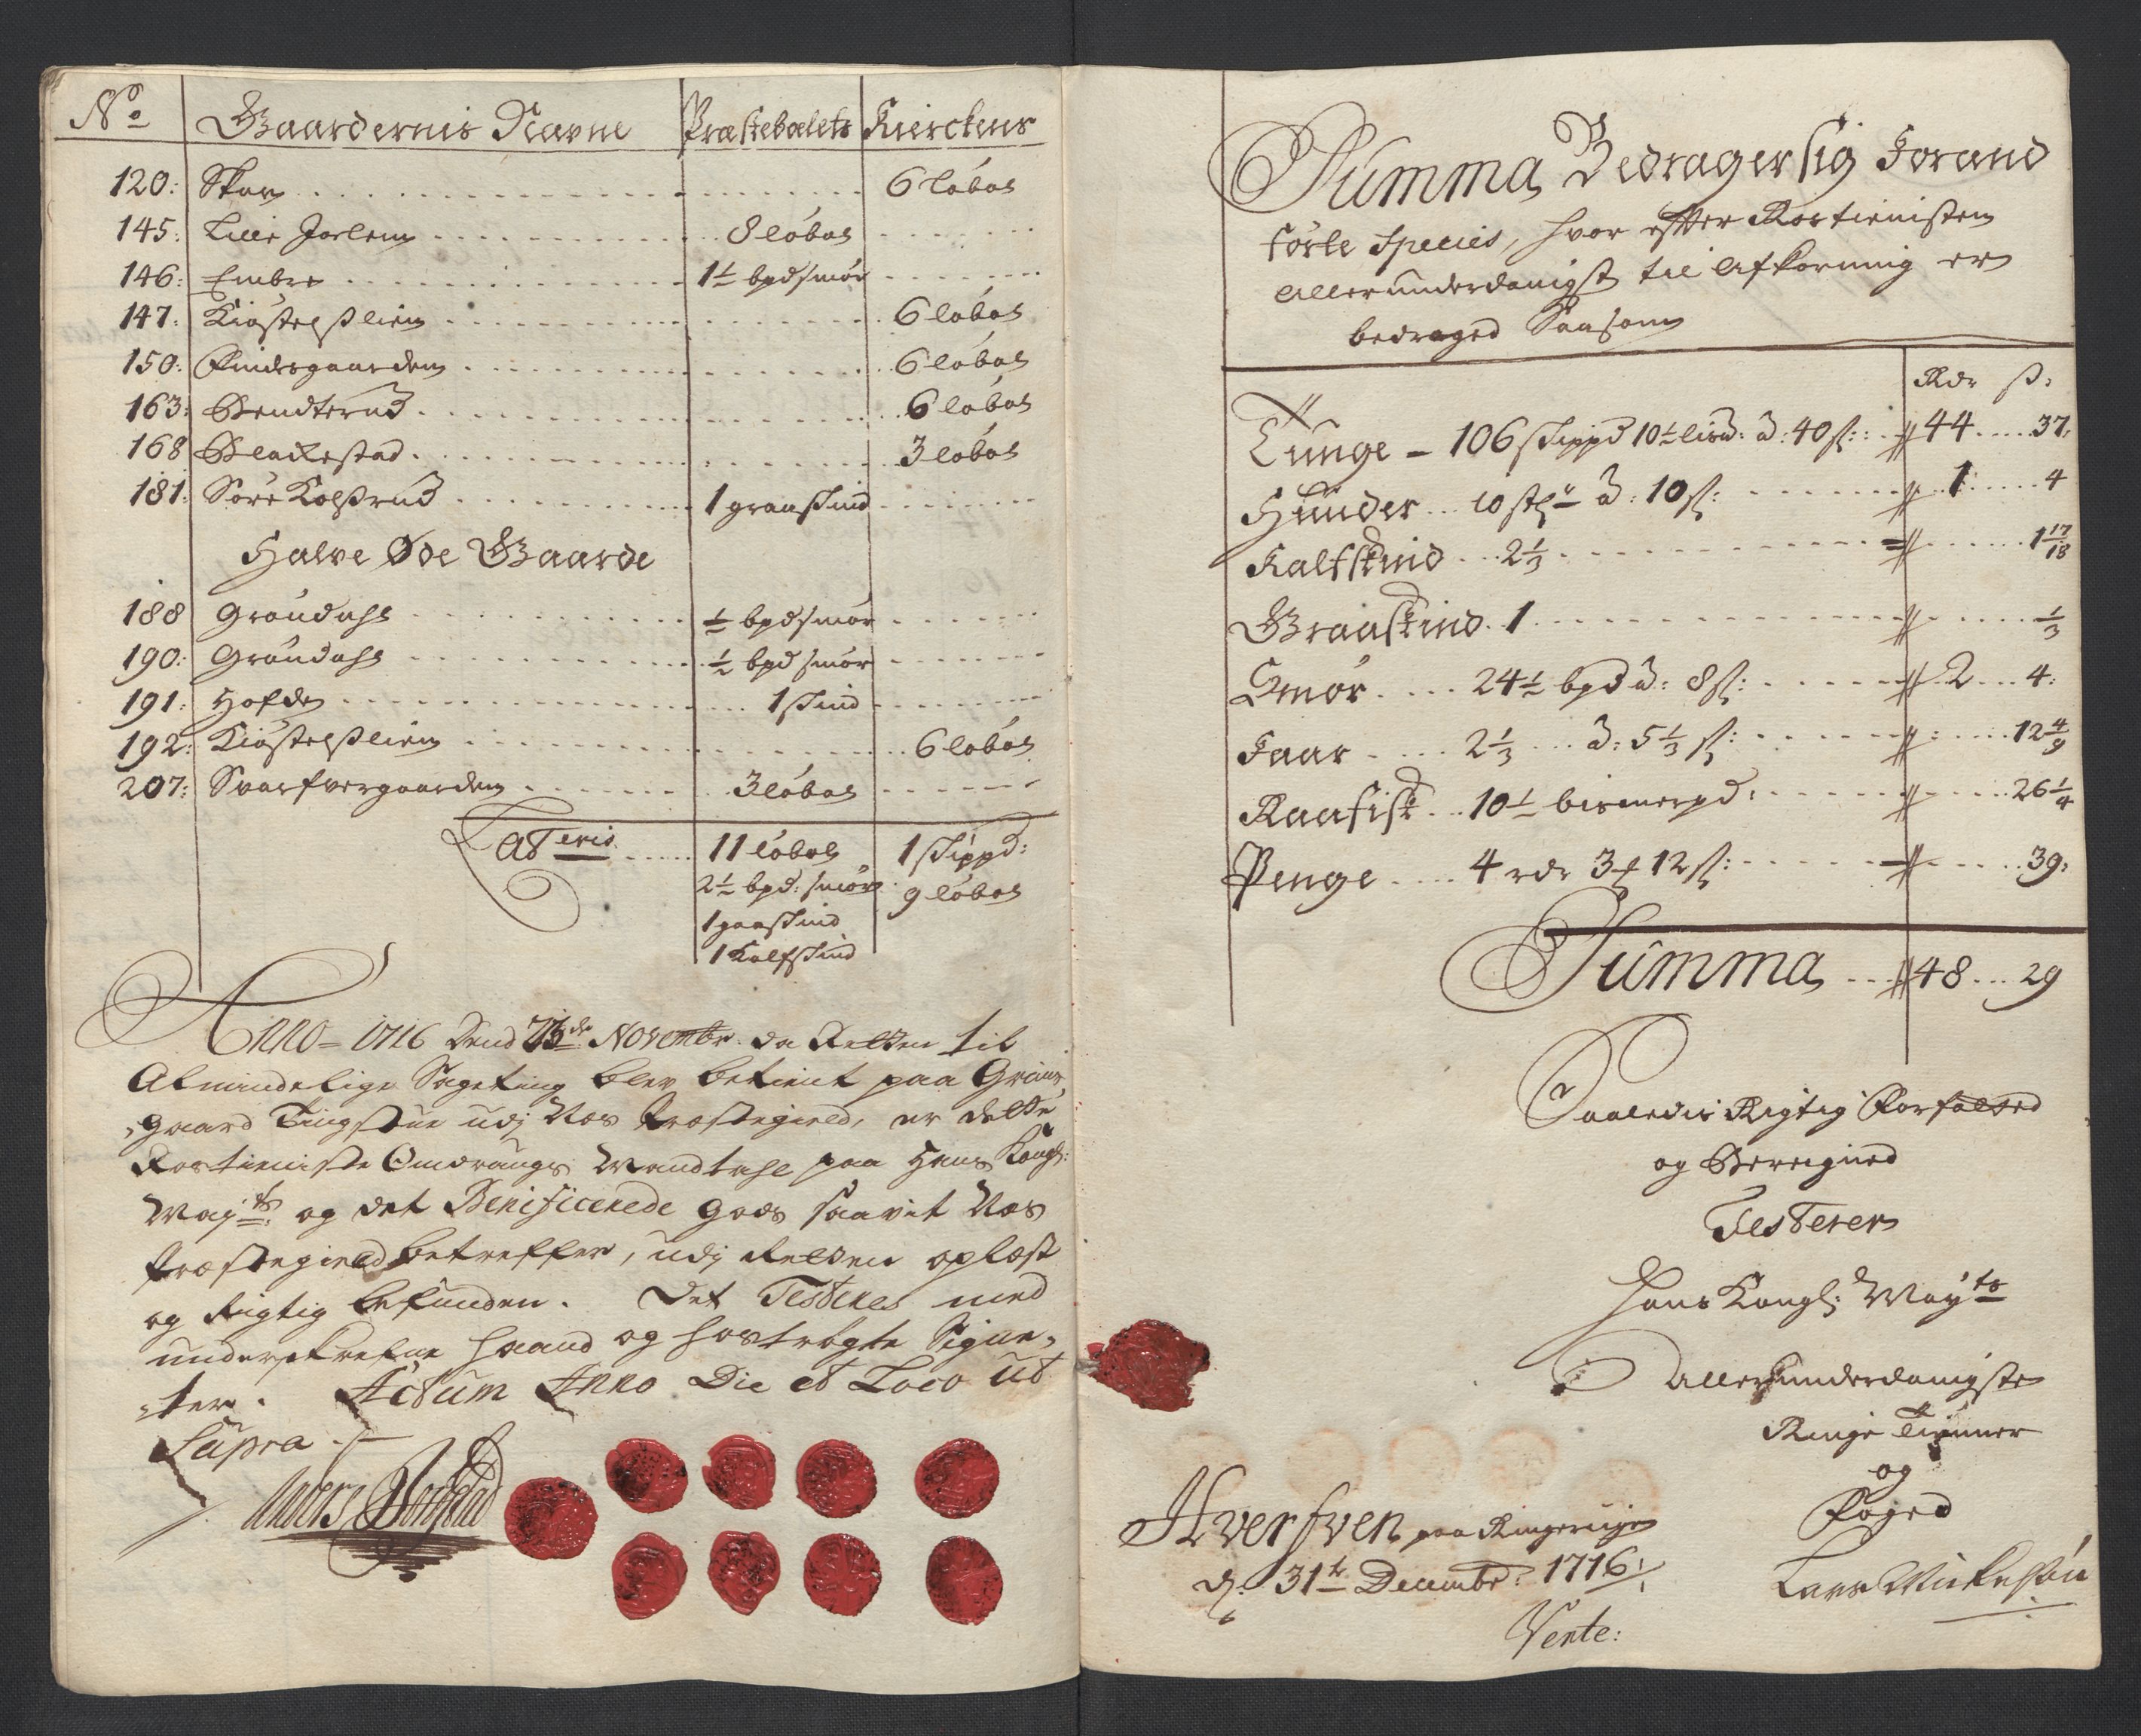 No Gaardernis Nafne Præstebolets Kierckens
120: Skar 6 løbol
145: Lille Jorlem 8 løbol
146: Embre 1½ bpd smør
147: Kiøstelsliem 6 løbol
150: Findsgaarden 6 løbol
163: Bendterud 6 løbol
168 Blackestad 3 løbol
181: Søre Kolsrud 1 graaskind
Halve Øde Gaarde
188 Grøndahl ½ bpd smør
190: Grøndahl ½ bpd smør
191: Hofde 1 skind
192: Kiøstelsliem 6 løbol
207: Svarfvergaarden 3 løbol
Lateris 11 løbol 1 skippd:
2½ bpd: smør 9 løbol
1 graaskind
1 Kalfskind
Anno 1716 Dend Novembr. da Retten til
Almindelige Sageting blev betient paa
gaard Tingstue udj Næs Præstegield, er dette
Rostieniste Omdrangs Mandtahl paa Hans Kongl:
Maj:ts og det Beneficerede gods saavit Næs
Præstegield betreffer, udj Retten oplæst
og Rigtig befunden. Det Testeres med
underskrefne Haand og hostrøgte Signe-
-ter. Actum Anno Die et Loco ut
Supra
Anders
Summa Bedrager sig Foran
førte Species, hvor efter Rostienisten
allerunderdanigst til afkorning er
bedraged Saasom
Rdr s:
Tunge - 106 skippd 10½ lisd: a: 40 s: 44 37,
Hunder 10 stk a: 10 s: 1 4
Kalfskind 2⅓ 1 17/18
Graaskind 1 ⅓
Smør 24½ bpd a: 8 s: 2 4:
Faar 2⅓ a: 5⅓ s: 12 4/9
Raafisk 10½ bismerpd: 26¼
Penge 4 rdr 3 f 12 s: 39,
Summa 48 29
Saaledis Rigtig Forfatted
og Beregned
Testerer
Hans Kongl: Mayts
Allerunderdanigste
Ringe Tienner
og
Foged
Hverfven paa Ringerige
d: 31te Decembr: 1716:/
Lars
Vente: